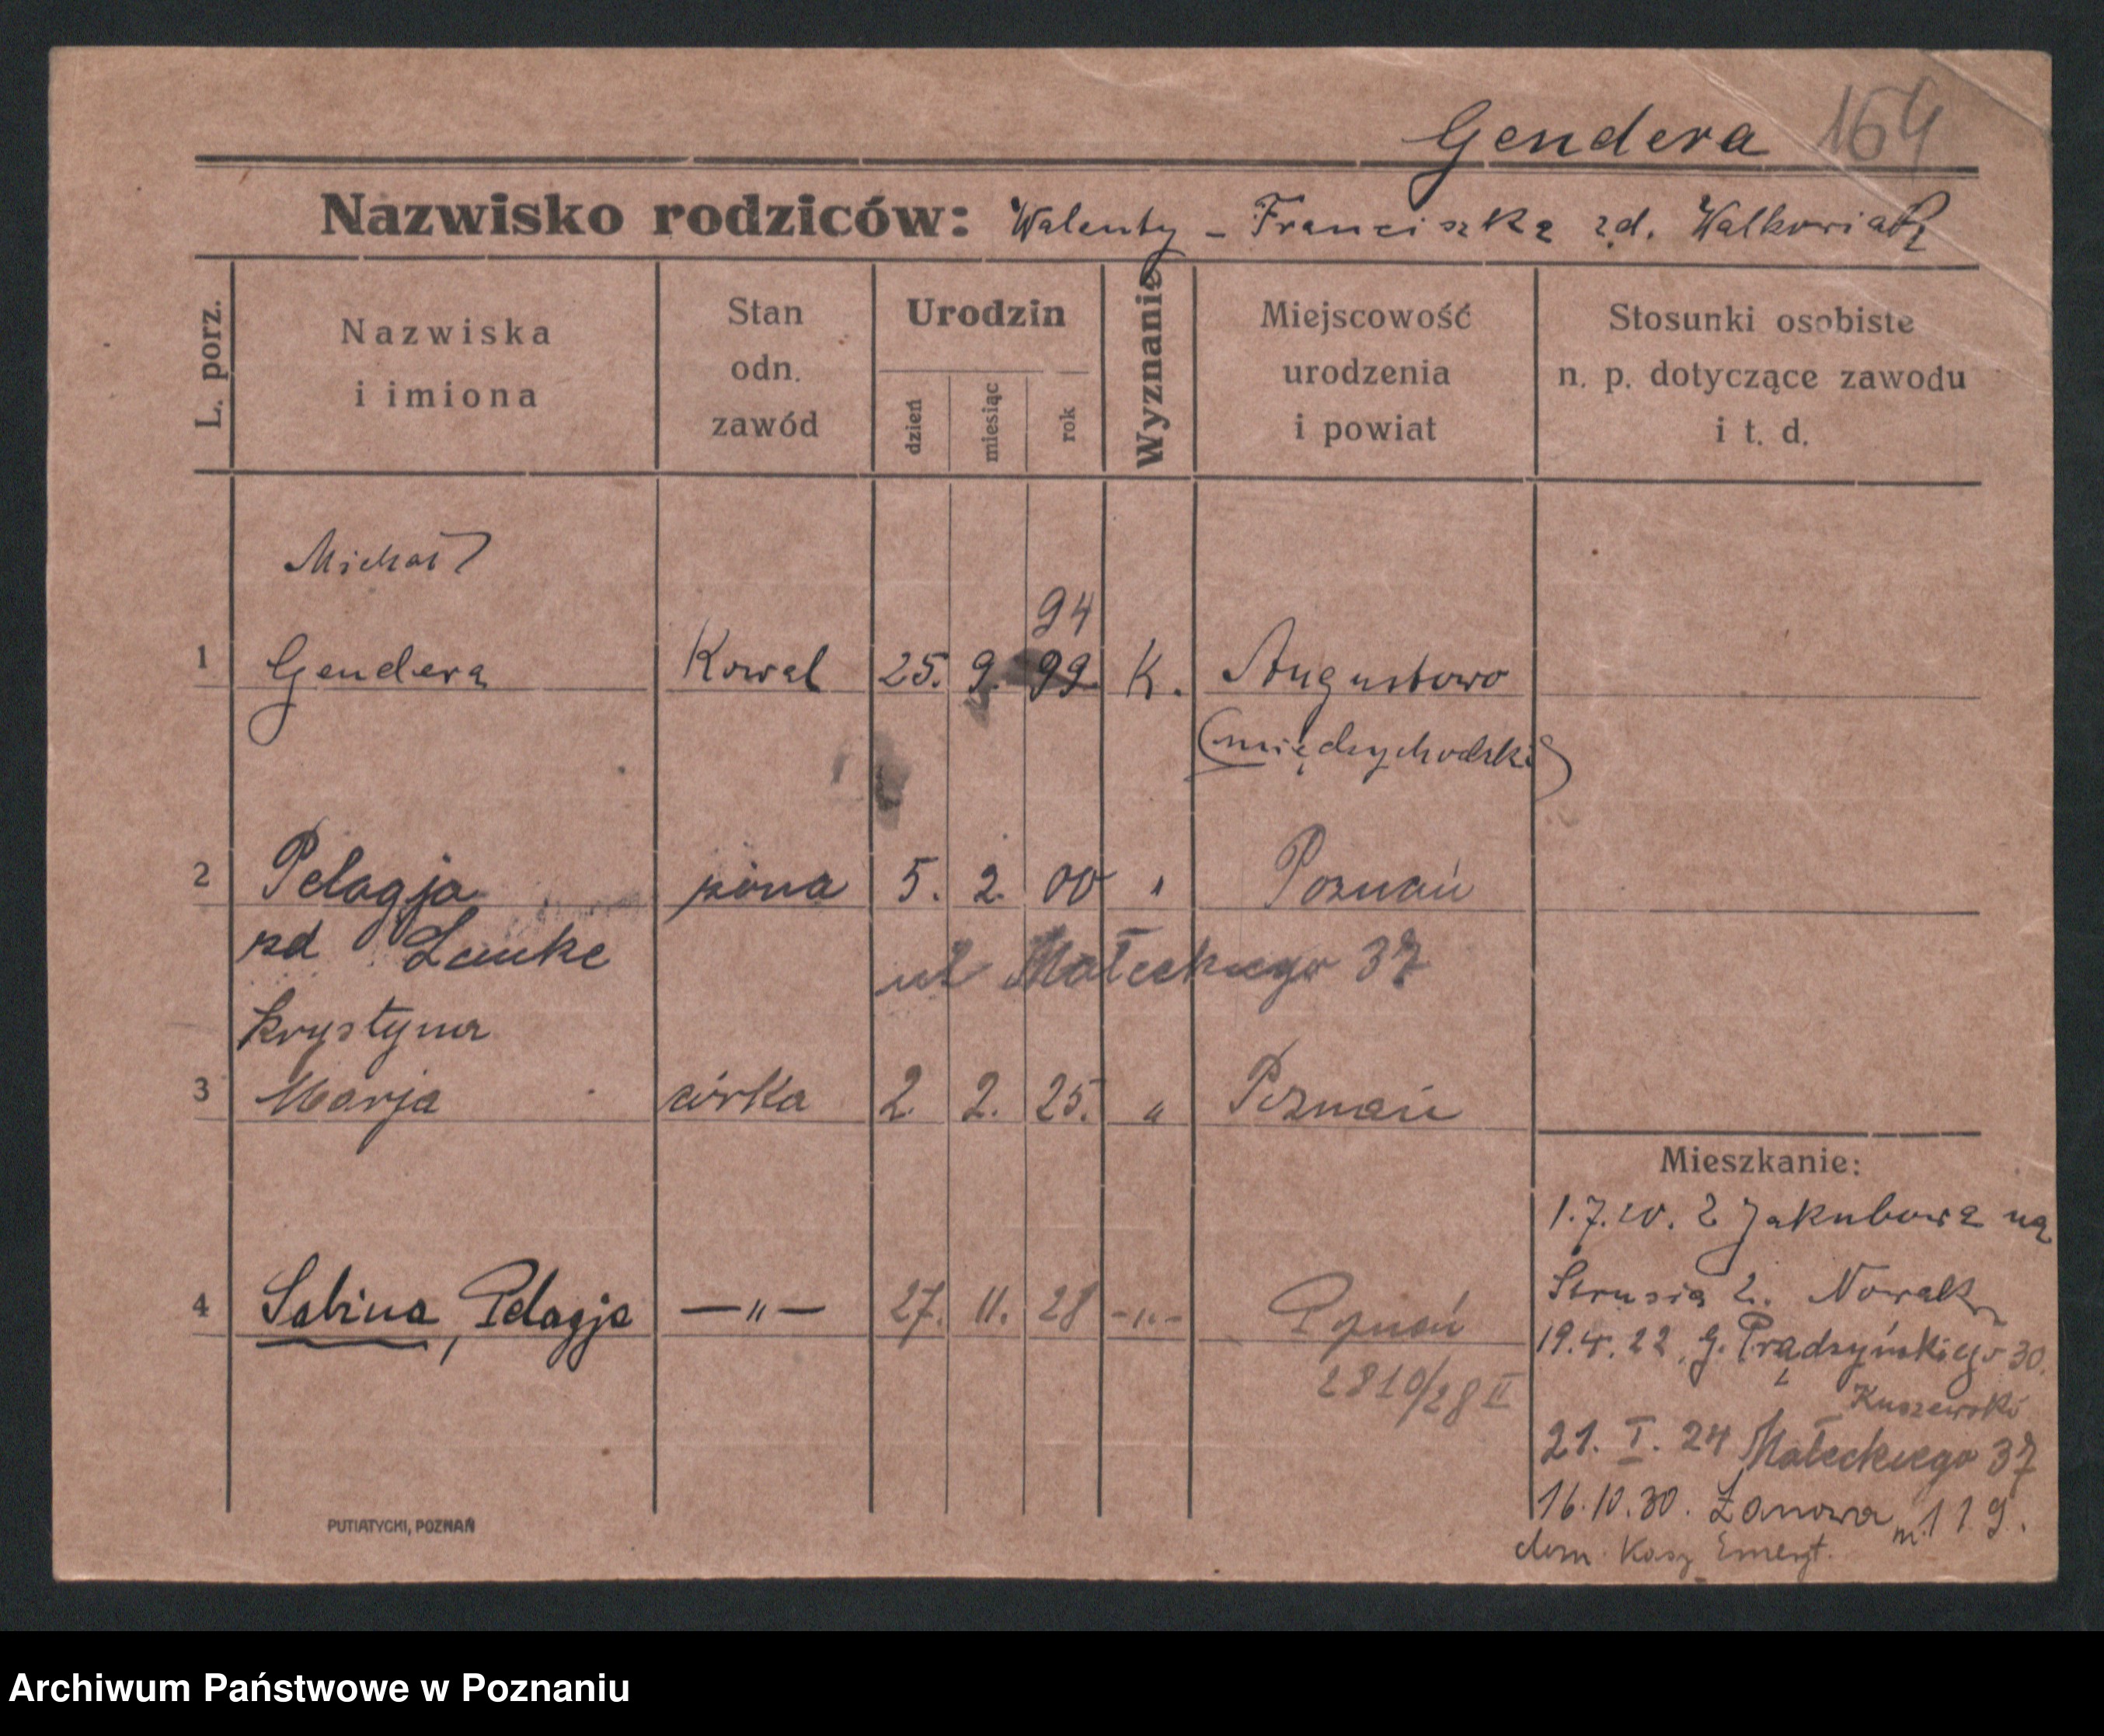 Gendera 164
Nazwisko rodziców: Walenty - Franciszka zd. Walkowiak
L. porz.
Nazwiska
i imiona
Stan
odn.
zawód
Urodzin
dzień
miesiąc
rok
Wyznanie
Miejscowość
urodzenia
i powiat
Stosunki osobiste
n. p. dotyczące zawodu
i t. d.
Michał
94
1 Gendera Kowal 25. 9. 99. K. Augustowo
(międzychodzki)
2 Pelagja żona 5. 2. 00 " Poznań
zd Lanke ul Małeckiego 37
Krystyna
3 Marja córka 2. 2. 25. " Poznań
Mieszkanie:
1.7.20. z Jakubowa na
4 Sabina, Pelagja — " — 27. 11. 28 - " - Poznań
Strusia 2. Nowak
19.4.22. G. Prądzyńskiego 30.
2810/28 II
Kuszewski
21. I. 24 Małeckiego 37
16.10.30. Łanowa m 119.
dom. Kasy Emeryt.
PUTIATYCKI, POZNAŃ
Archiwum Państwowe w Poznaniu